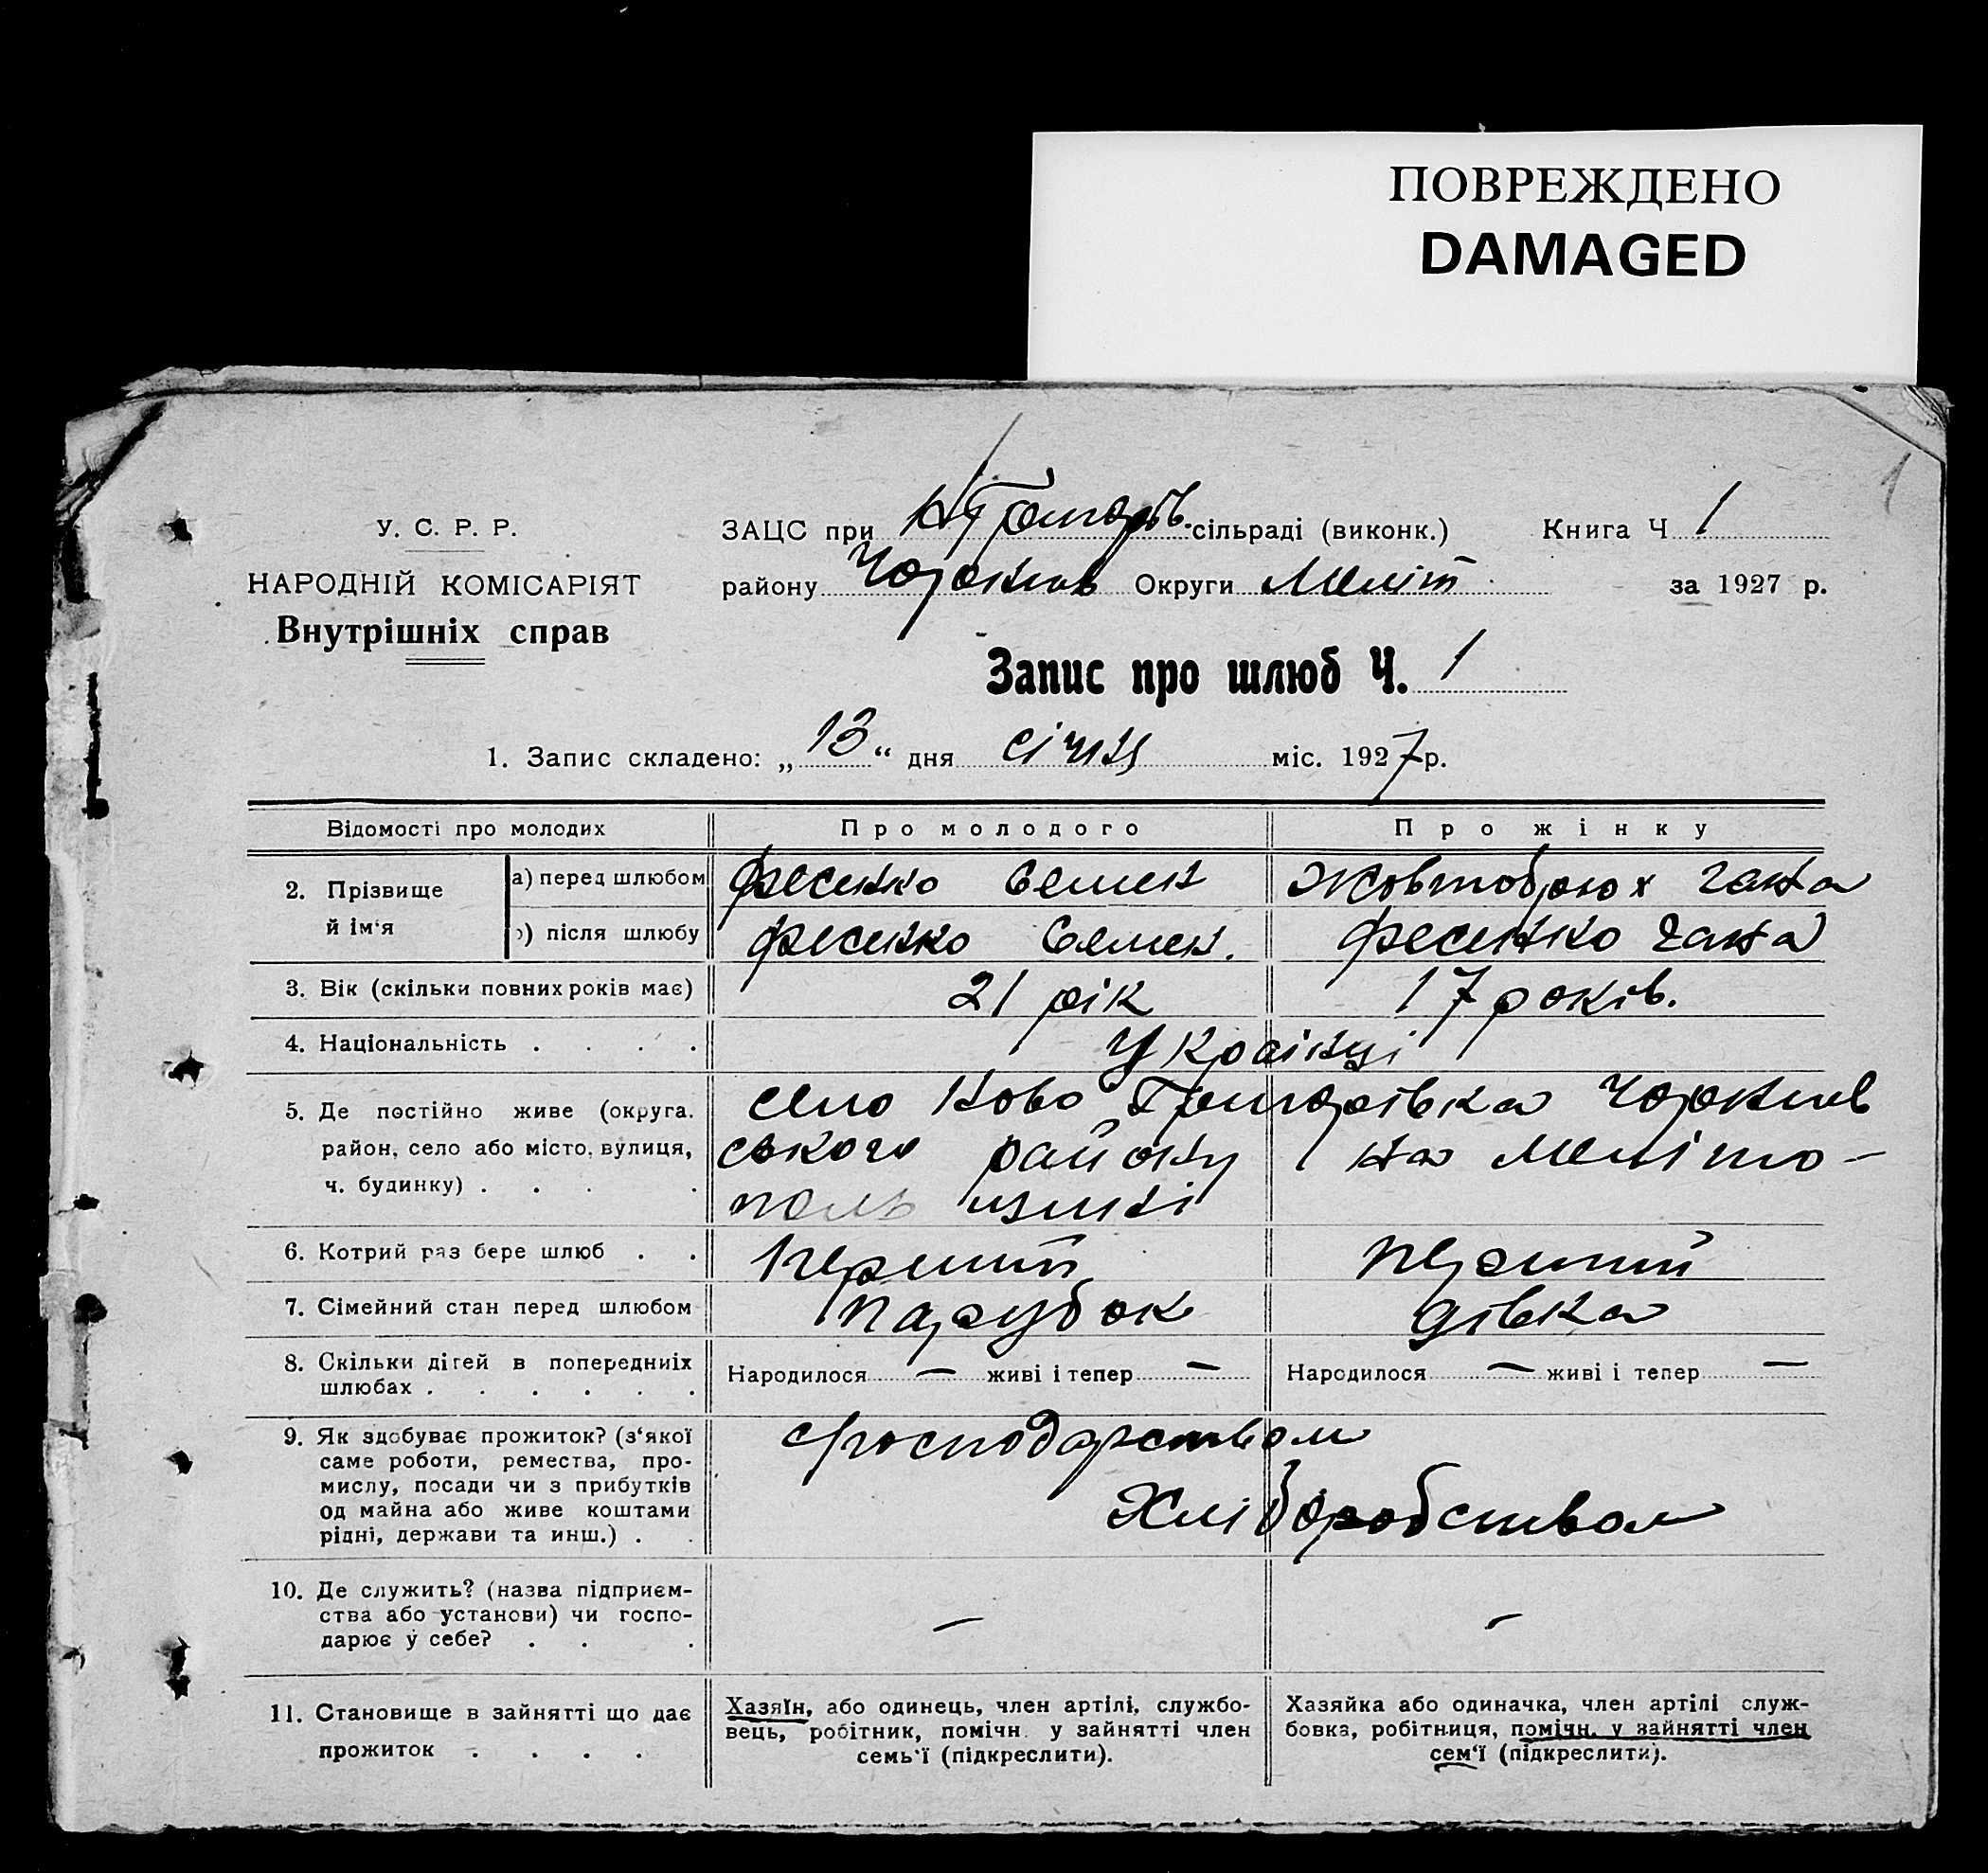 ПОВРЕЖДЕНО
DAMAGED
1
У. С. Р. Р.
НАРОДНІЙ КОМІСАРІЯТ
Внутрішніх справ
ЗАЦС при Н Григорів. сільраді (виконк.) Книга Ч 1
району Чорнив Округи Меліт за 1927 р.
Запис про шлюб Ч. 1
1. Запис складено: „13“ дня січня міс. 1927 р.
Відомості про молодих Про молодого Про жінку
2. Прізвище й ім‘я
а) перед шлюбом Фесенко Семен Жовтобрюх Гана
б) після шлюбу Фесенко Семен. Фесенко Гана
3. Вік (скільки повних років має) 21 рік 17 років.
4. Національність . . . . Українці
5. Де постійно живе (округа, район, село або місто, вулиця, ч. будинку) . . . .
село Ново Григорівка Чорнив
ського району на Меліто-
поль щині
6. Котрий раз бере шлюб . . Перший перший
7. Сімейний стан перед шлюбом парубок дівка
8. Скільки дітей в попередніх шлюбах . . . . . .
Народилося — живі і тепер — Народилося — живі і тепер —
9. Як здобуває прожиток? (з‘якої
саме роботи, ремества, про-
мислу, посади чи з прибутків
од майна або живе коштами
рідні, держави та инш.) . .
господарством
Хліборобством
10. Де служить? (назва підприєм-
ства або установи) чи госпо-
дарює у себе? . . .
— —
11. Становище в зайнятті що дає
прожиток . . . .
Хазяїн, або одинець, член артілі, службо-
вець, робітник, помічн. у зайнятті член
семь‘ї (підкреслити).
Хазяйка або одиначка, член артілі служ-
бовка, робітниця, помічн. у зайнятті член
сем‘ї (підкреслити).